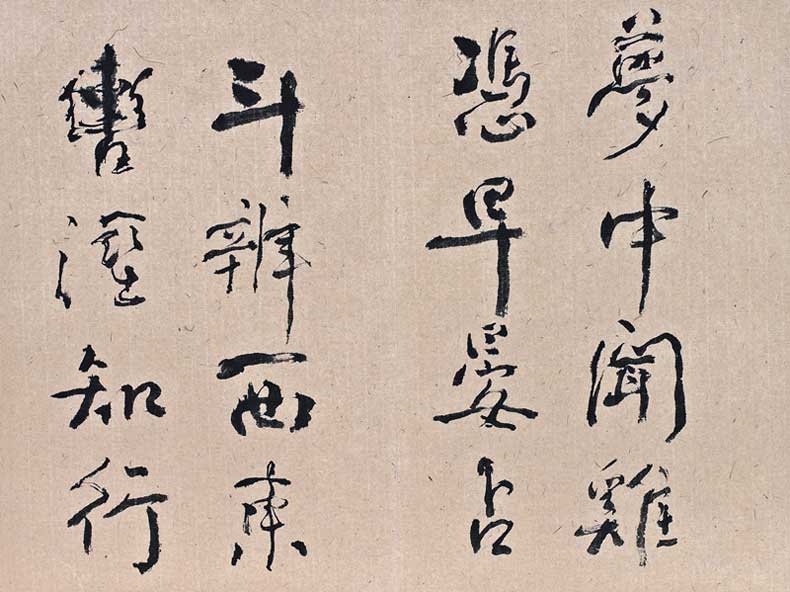 夢中聞雞
憑早晏占
斗辨西東
轡溼知行